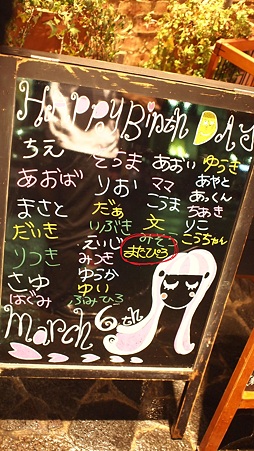 Happy Birth DAY
ちえ
あおば
まさと
だいき
りつき
さゆ
はぐみ
そうま
りお
だぁ
いぶき
えいじ
みつき
ゆうか
ゆい
ふみひろ
あおい
ママ
こうま
文
みそう
またひろ
ゆうき
あやと
あっくん
ちあき
りこ
こうちゃん
March 6th